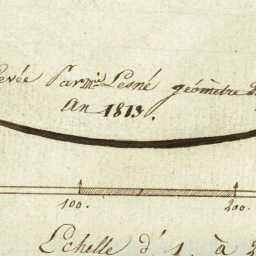 Levée Par mie Lesné géomètre d
An 1813.
100. 200.
Echelle d' 1. à 2